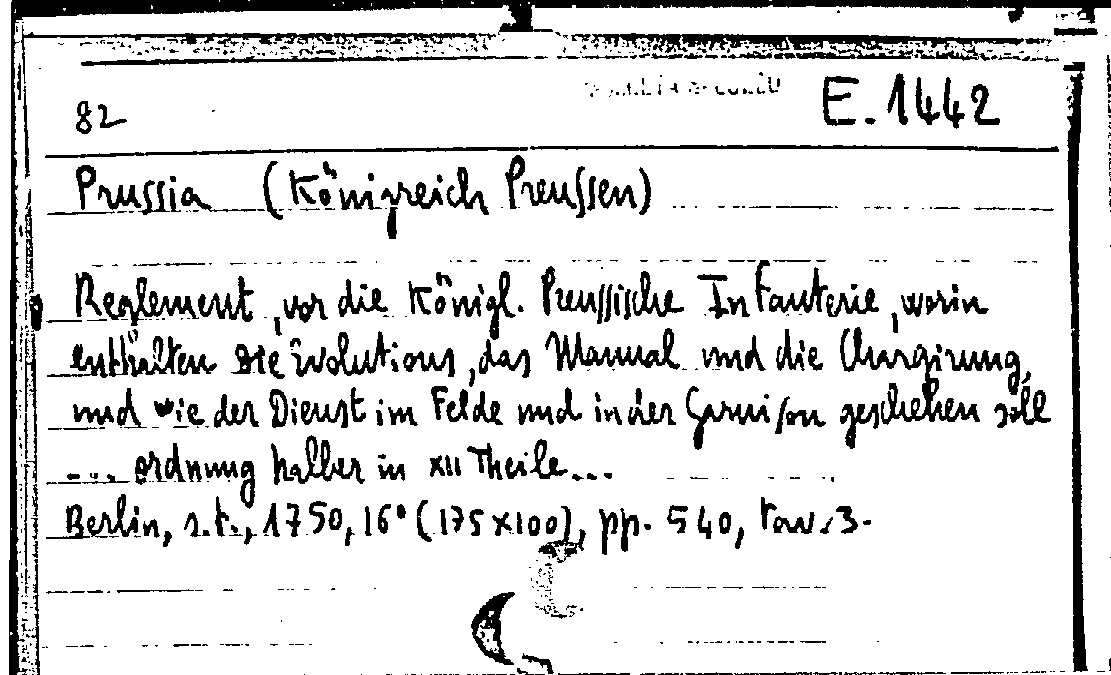 82 E.1442
Prussia (Königreich Preussen)
Reglement, vor die Königl. Preussische Infanterie, worin
enthalten die Evolutions, das Manual und die Chargirung,
und wie der Dienst im Felde und in der Garnison geschehen soll
... ordnung halber in XII Theile...
Berlin, s.t., 1750, 16° (175x100), pp. 540, tav. 3.